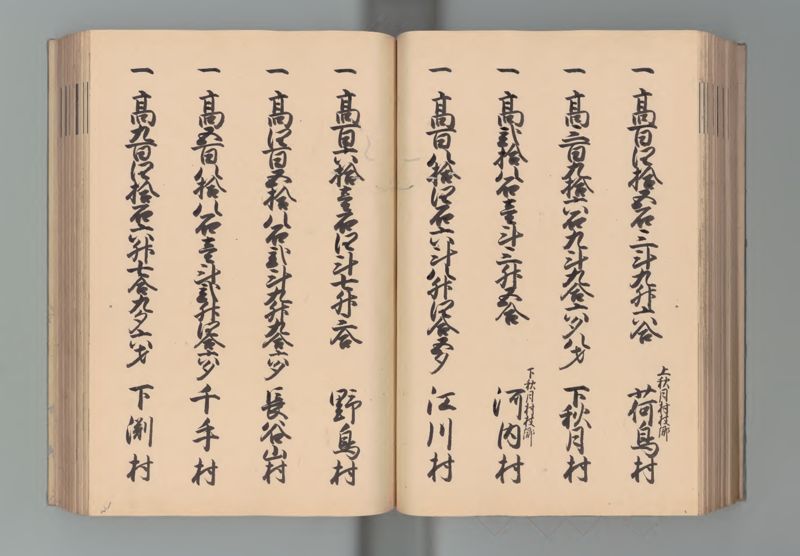 一 高百四拾五石三斗九升六合
上秋月村枝郷
荷鳥村
一 高三百九拾六石九斗九合六夕八才
下秋月村
一 高弐拾八石壱斗三升五合
下秋月村枝郷
河内村
一 高百八拾四石六斗八升四合五夕
江川村
一 高百六拾壱石四斗七升二合
野鳥村
一 高四百五拾八石弐斗九升九合六夕
長谷山村
一 高五百八拾八石壱斗弐升四合六夕
千手村
一 高九百四拾石六升七合九夕六才
下渕村